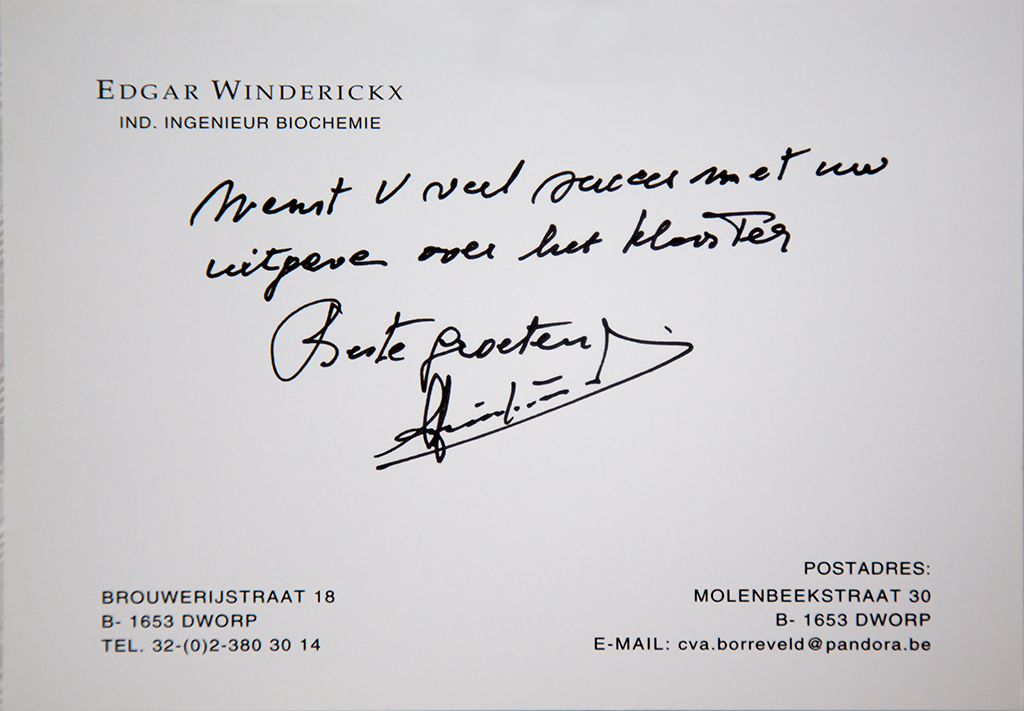 EDGAR WINDERICKX
IND. INGENIEUR BIOCHEMIE
Wenst U veel succes met uw
uitgave over het klooster
Beste groeten
BROUWERIJSTRAAT 18
B- 1653 DWORP
TEL. 32-(0)2-380 30 14
POSTADRES:
MOLENBEEKSTRAAT 30
B- 1653 DWORP
E-MAIL: cva.borreveld@pandora.be